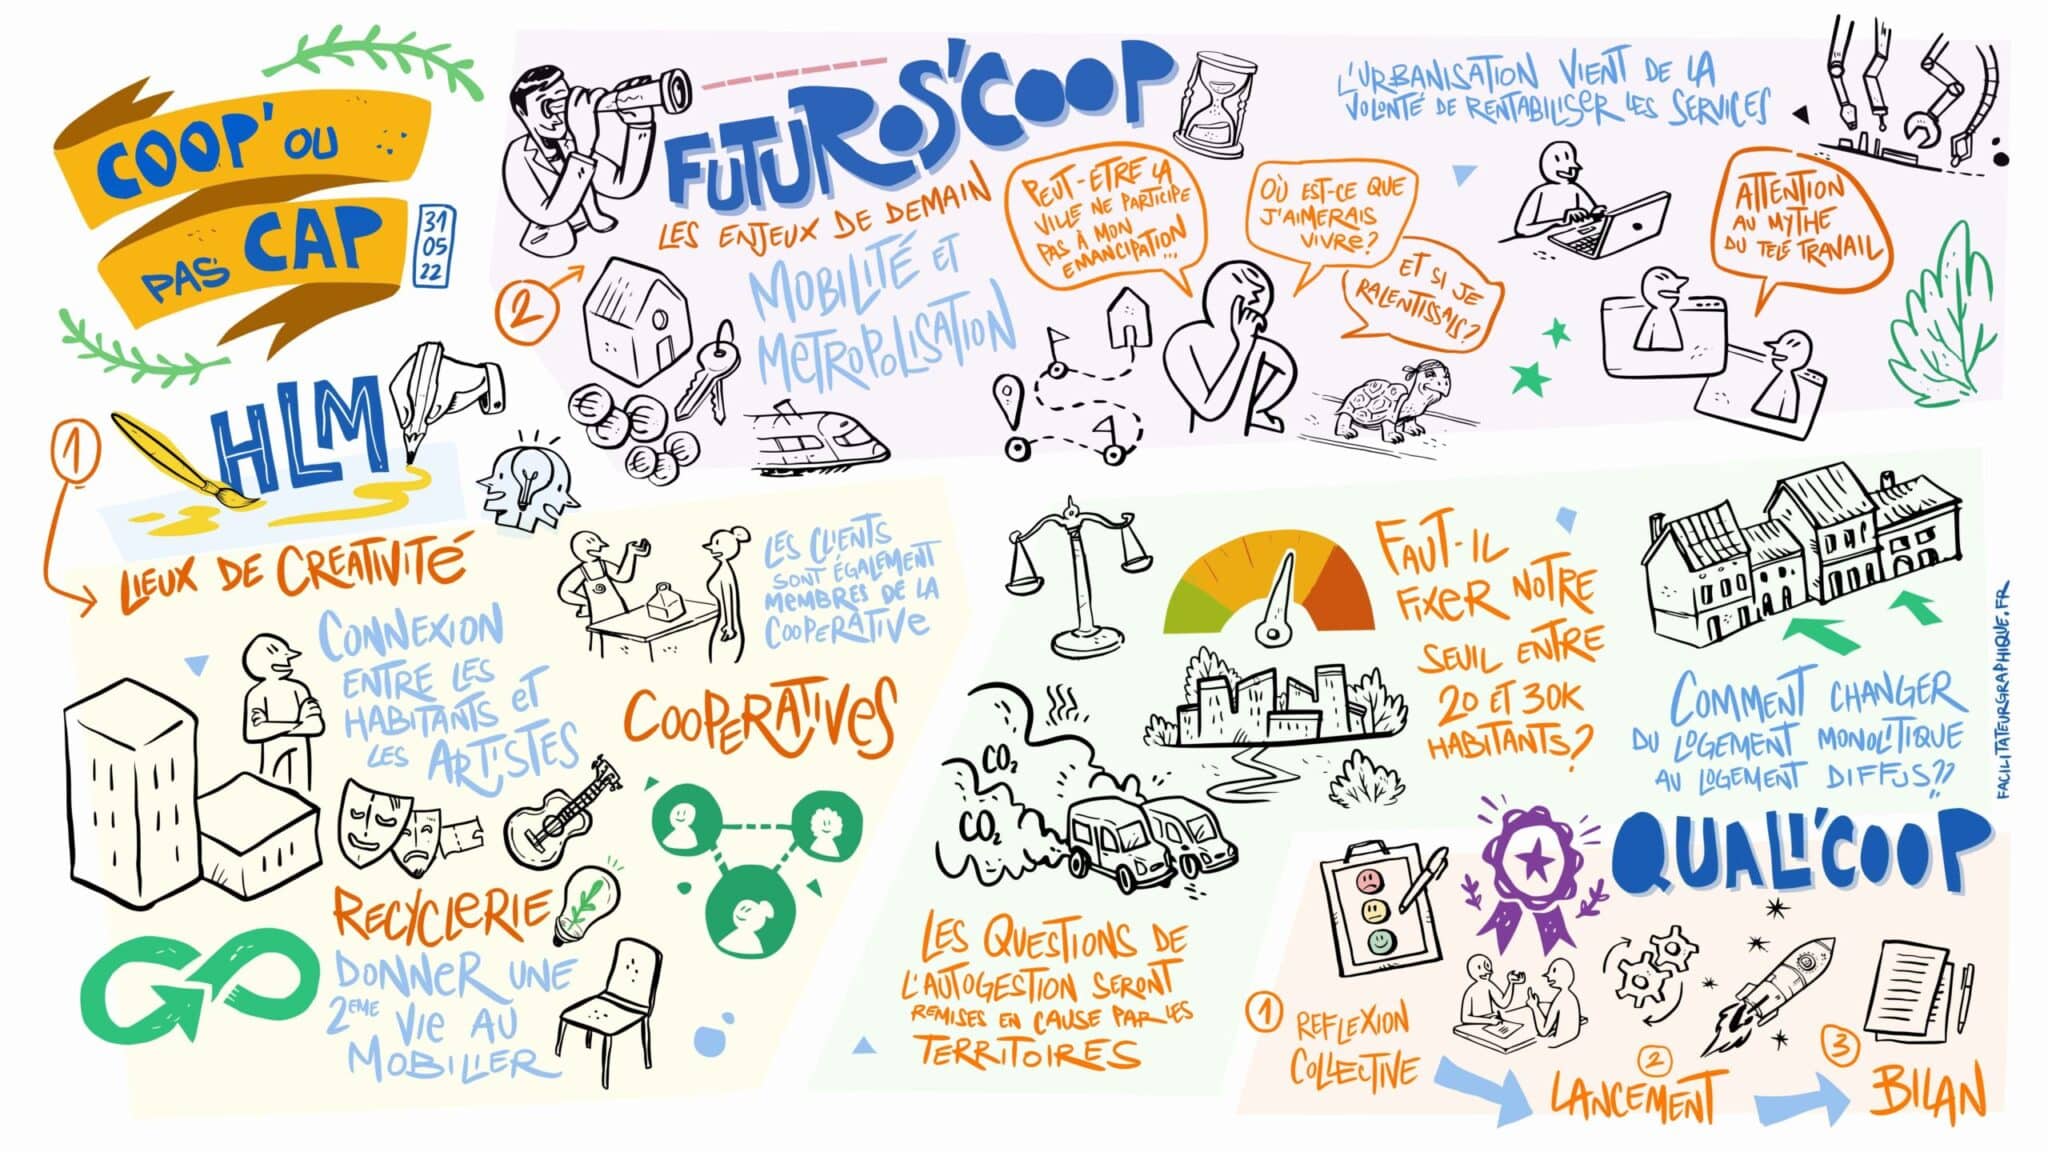 COOP' OU
PAS CAP
31
05
22
1
HLM
LIEUX DE CREATIVITÉ
CONNEXION
ENTRE LES
HABITANTS ET
LES ARTISTES
LES CLIENTS
SONT ÉGALEMENT
MEMBRES DE LA
COOPERATIVE
COOPERATIVES
RECYCLERIE
DONNER UNE
2EME VIE AU
MOBILIER
2
FUTUROS'COOP
LES ENJEUX DE DEMAIN
MOBILITÉ ET
METROPOLISATION
PEUT-ETRE LA
VILLE NE PARTICIPE
PAS À MON
EMANCIPATION...
OÙ EST-CE QUE
J'AIMERAIS
VIVRE?
ET SI JE
RALENTISSAIS?
L'URBANISATION VIENT DE LA
VOLONTÉ DE RENTABILISER LES SERVICES
ATTENTION
AU MYTHE
DU TELÉ TRAVAIL
CO2
CO2
LES QUESTIONS DE
L'AUTOGESTION SERONT
REMISES EN CAUSE PAR LES
TERRITOIRES
FAUT-IL
FIXER NOTRE
SEUIL ENTRE
20 ET 30K
HABITANTS?
COMMENT CHANGER
DU LOGEMENT MONOLITIQUE
AU LOGEMENT DIFFUS??
FACILITATEURGRAPHIQUE.FR
QUALI'COOP
1 REFLEXION
COLLECTIVE
2
LANCEMENT
3
BILAN